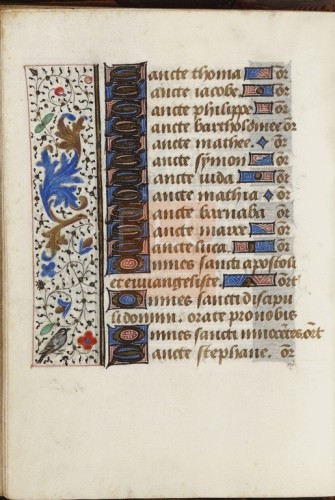 Sancte thoma or
Sancte iacobe or
Sancte philippe or
Sancte bartholomee or
Sancte mathee. or
Sancte symon or
Sancte iuda or
Sancte mathia or
Sancte barnaba or
Sancte marce or
Sancte luca. or
Omnes sancti apostoli
et euuangeliste. ort
Omnes sancti discipu
li domini. orate pro nobis
Omnes sancti innocētes. ort
Sancte stephane. or